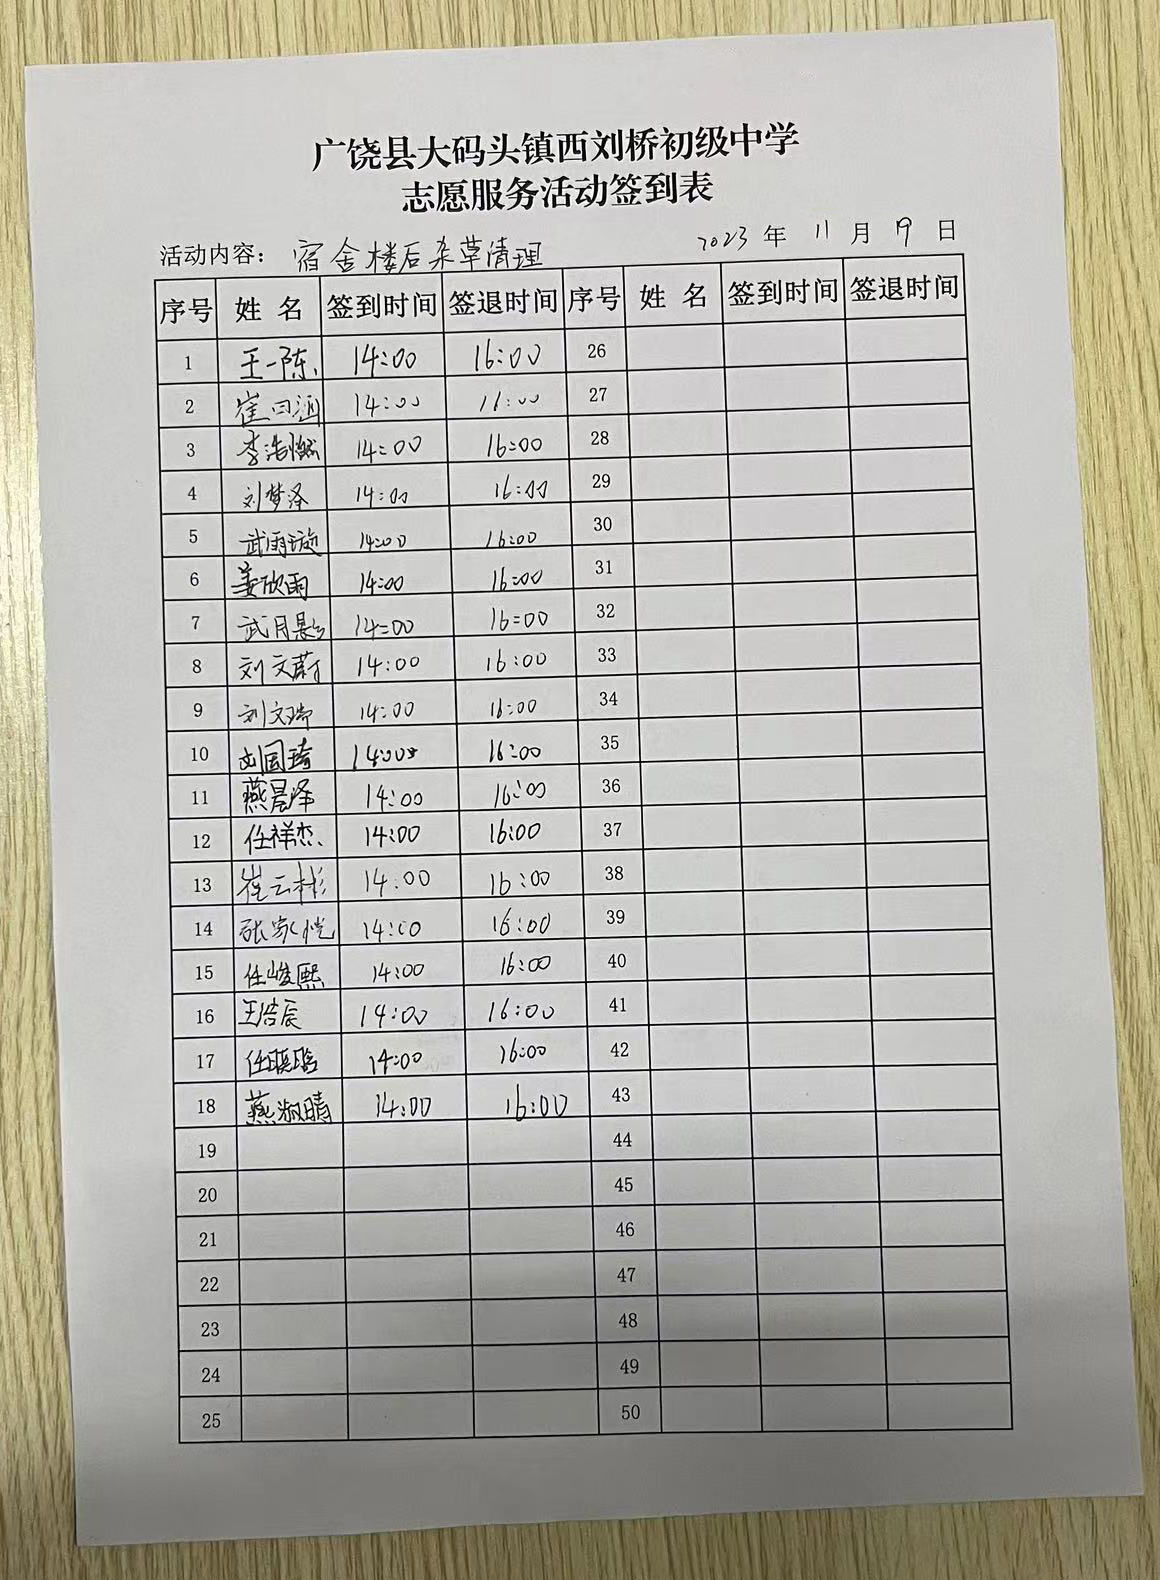 广饶县大码头镇西刘桥初级中学
志愿服务活动签到表
活动内容： 宿舍楼后杂草清理 2023 年 11 月 19 日
序号 姓名 签到时间 签退时间 序号 姓名 签到时间 签退时间
1 王一陈 14:00 16:00 26
2 崔 14:00 16:00 27
3 李浩燃 14:00 16:00 28
4 刘梦泽 14:00 16:00 29
5 武雨璇 14:00 16:00 30
6 姜欣雨 14:00 16:00 31
7 武月影 14:00 16:00 32
8 刘文蔚 14:00 16:00 33
9 刘文瑞 14:00 16:00 34
10 刘国琦 14:00 16:00 35
11 燕晨泽 14:00 16:00 36
12 任祥杰 14:00 16:00 37
13 崔云彬 14:00 16:00 38
14 张家恺 14:00 16:00 39
15 任峻熙 14:00 16:00 40
16 王浩辰 14:00 16:00 41
17 任 14:00 16:00 42
18 燕淑晴 14:00 16:00 43
19 44
20 45
21 46
22 47
23 48
24 49
25 50